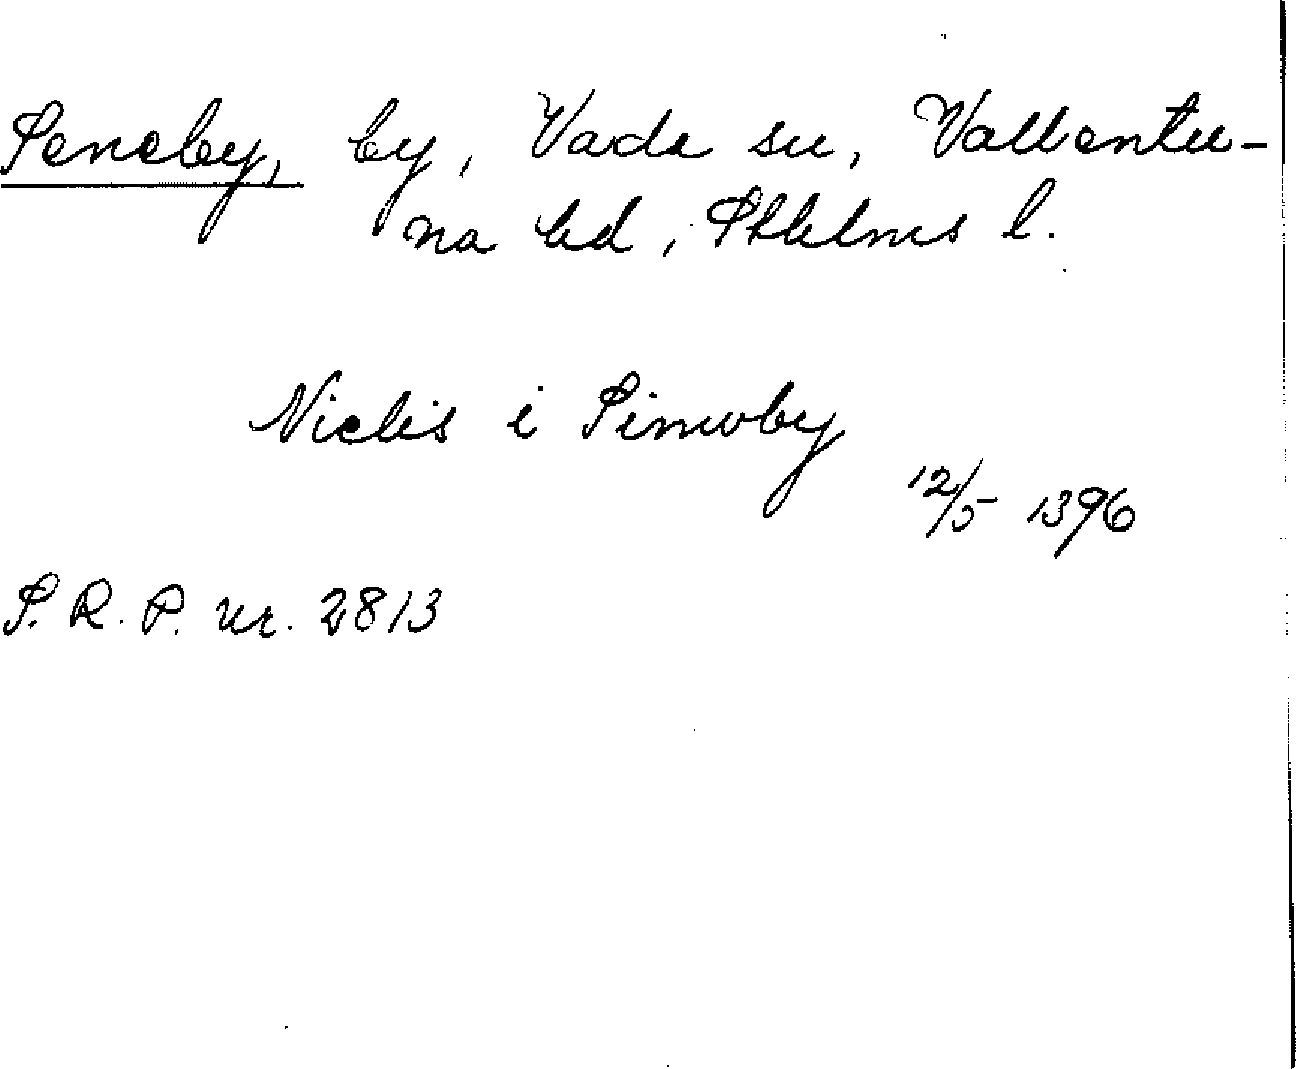 Seneby, by, Vada sn, Vallentu-
na hd, Sthlms l.
Niclis i Simoby
12/5 1396
S. R. P. nr. 2813